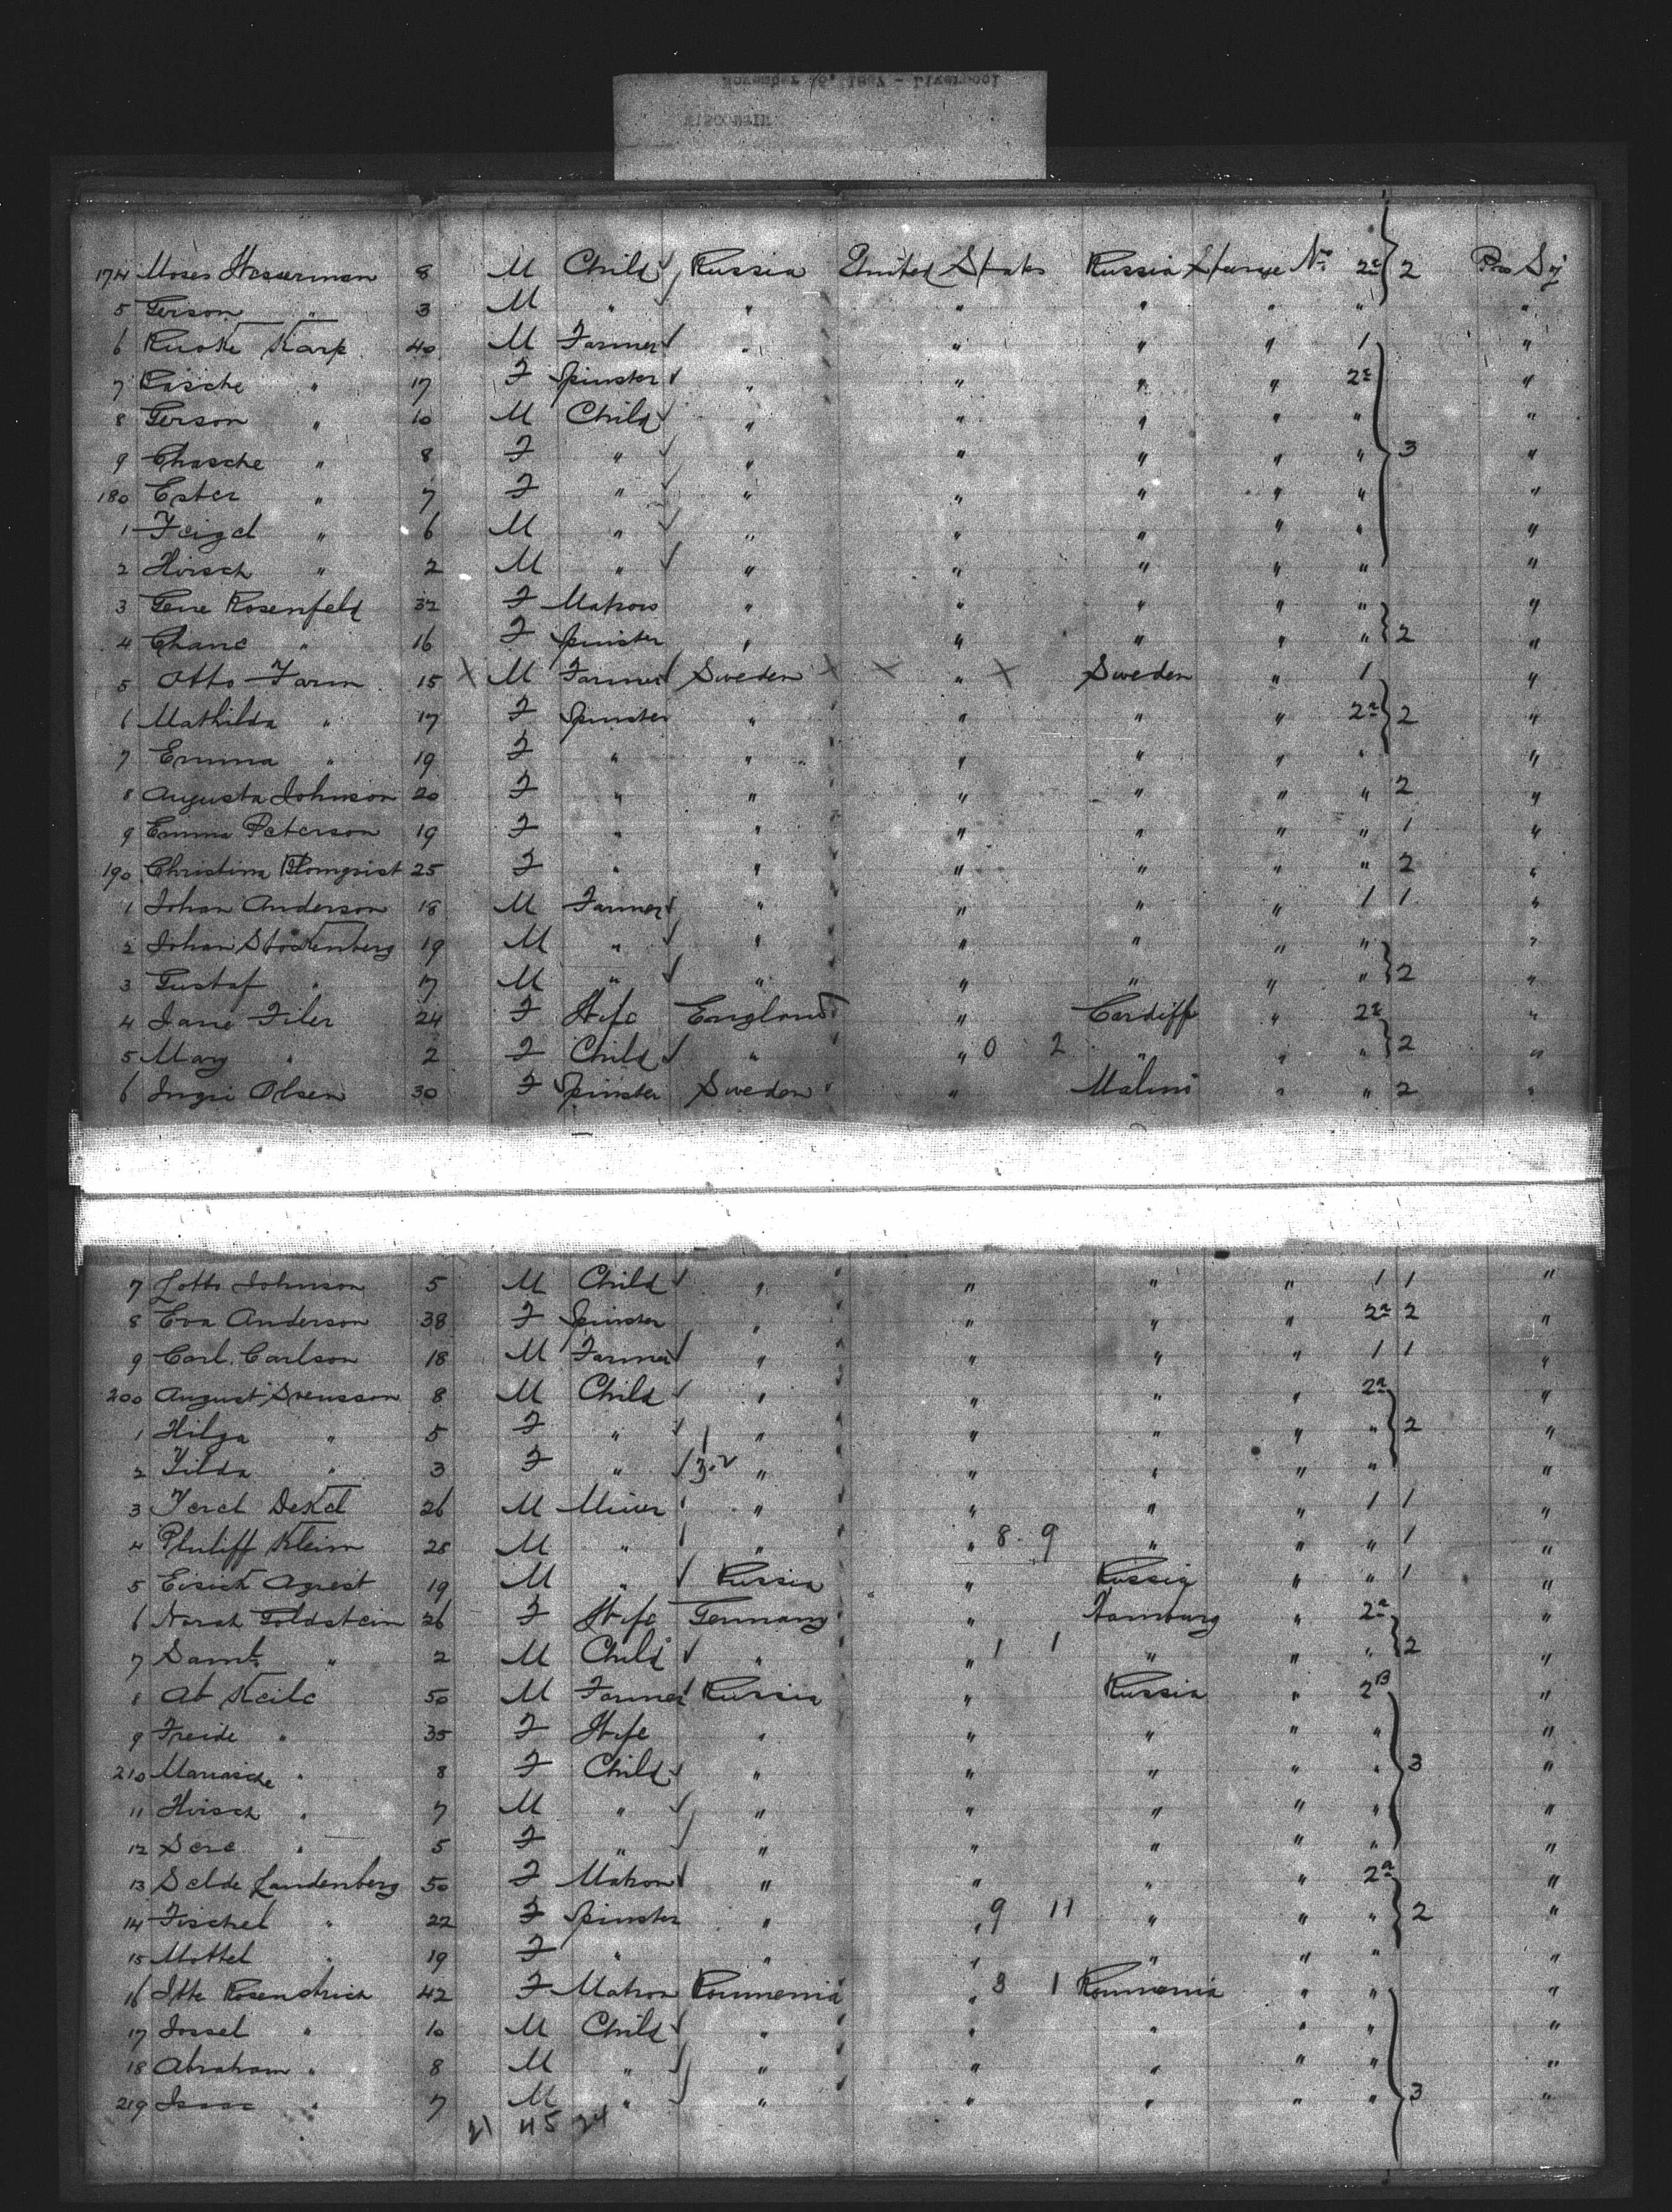 174 Moses Wasserman 8 M Child Russia United States Russia Steerage No 2a 2 Pro Sj
5 Gerson " 3 M " " " " " " "
6 Karp 40 M Farmer " " " " 1 "
7 Rasche " 17 F Spinster " " " " 2a "
8 Gerson " 10 M Child " " " " " "
9 Chasche " 8 F " " " " " " 3 "
180 Ester " 7 F " " " " " " "
1 Feigel " 6 M " " " " " " "
2 Hirsch " 2 M " " " " " " "
3 Gene Rosenfeld 32 F Matron " " " " " "
4 Chane " 16 F Spinster " " " " " 2 "
5 Otto Farm 15 X M Farmer Sweden X X " X Sweden " 1 "
6 Mathilda " 17 F Spinster " " " " 2a 2 "
7 Emma " 19 F " " " " " " "
8 Augusta Johnson 20 F " " " " " " 2 "
9 Emma Peterson 19 F " " " " " " 1 "
190 Christina Blomqvist 25 F " " " " " " 2 "
1 Johan Anderson 18 M Farmer " " " " 1 1 "
2 Johan Stockenberg 19 M " " " " " " "
3 Gustaf " 17 M " " " " " " 2 "
4 Jane Filer 24 F Wife England " Cardiff " 2a "
5 Mary " 2 F Child " " 0 2 " " " 2 "
6 Ingri Olsen 30 F Spinster Sweden " Malmö " " 2 "
7 Lotto Johnson 5 M Child " " " " 1 1 "
8 Eva Anderson 38 F Spinster " " " " 2a 2 "
9 Carl Carlson 18 M Farmer " " " " 1 1 "
200 August Svensson 8 M Child " " " " 2a "
1 Hilga " 5 F " " " " " " 2 "
2 Tilda " 3 F " 3.2 " " " " " "
3 26 M Miner " " " " 1 1 "
4 Philiff Klein 28 M " " " 8 9 " " " 1 "
5 Eisick Agrest 19 M " Russia " Russia " " 1 "
6 Norah Goldstein 26 F Wife Germany " Hamburg " 2a "
7 Saml " 2 M Child " " 1 1 " " " 2 "
8 Ab Keile 50 M Farmer Russia " Russia " 2B "
9 Freide " 35 F Wife " " " " " "
210 Mariasche " 8 F Child " " " " " 3 "
11 Hirsch " 7 M " " " " " " "
12 Sere " 5 F " " " " " " "
13 Selde Landenberg 50 F Matron " " " " 2a "
14 Fischel " 22 F Spinster " " 9 11 " " " 2 "
15 Mottel " 19 F " " " " " " "
16 Itte 42 F Matron Roumenia " 3 1 Roumenia " " "
17 Jossel " 10 M Child " " " " " "
18 Abraham " 8 M " " " " " " "
219 Isaac " 7 M " " " " " " 3 "
21 45 24